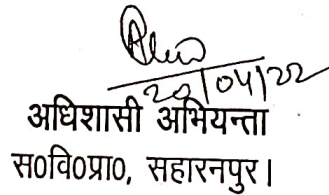 20/04/22
अधिशासी अभियन्ता
स०वि०प्रा०, सहारनपुर।